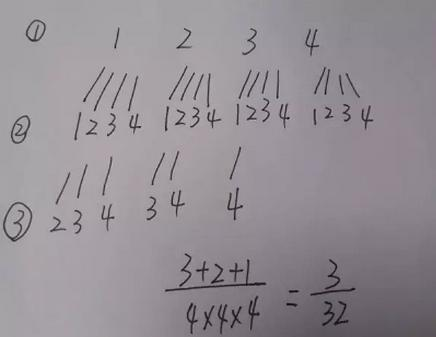 ① 1 2 3 4
② 1 2 3 4 1 2 3 4 1 2 3 4 1 2 3 4
③ 2 3 4 3 4 4
3+2+1
4×4×4 = 3/32